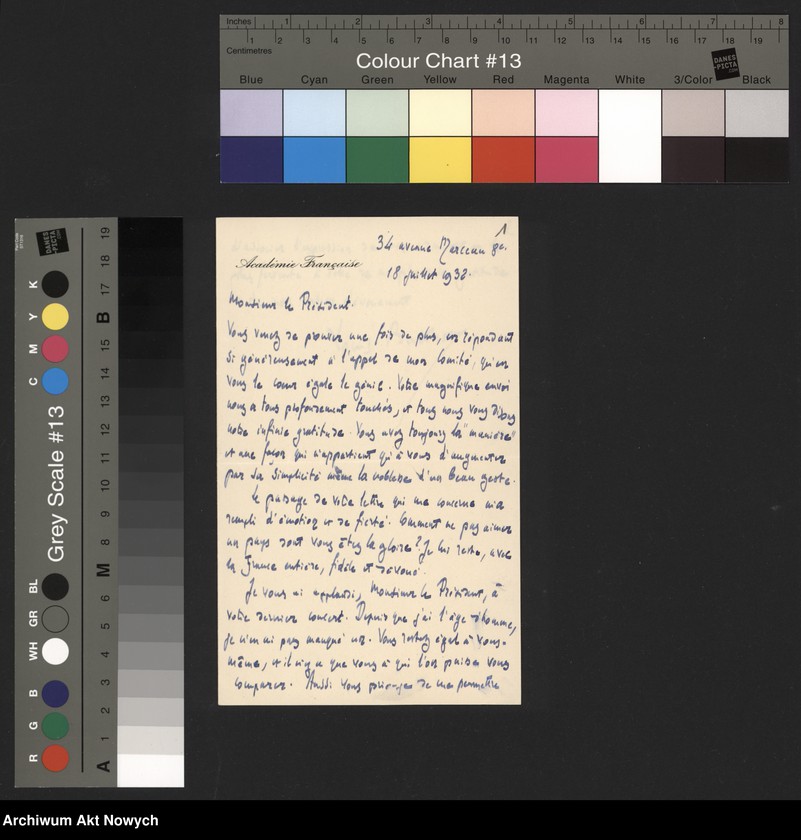 Inches 1 2 3 4 5 6 7 8
1 2 3 4 5 6 7 8 9 10 11 12 13 14 15 16 17 18 19
Centimetres
Colour Chart #13
DANES
-PICTA
.COM
Blue Cyan Green Yellow Red Magenta White 3/Color Black
Grey Scale #13
R G B WH GR BL C M Y K
A 1 2 3 4 5 6 M 8 9 10 11 12 13 14 15 B 17 18 19
DANES
-PICTA
.COM
1
34 avenue Marceau 8e.
Académie Française
18 juillet 1932.
Monsieur le Président.
Vous venez de prouver une fois de plus, en répondant
si généreusement à l'appel de mon Comité, qu'en
vous le cœur égale le génie. Votre magnifique envoi
nous a tous profondément touchés, et tous nous vous disons
notre infinie gratitude. Vous avez toujours la "manière"
et une façon qui n'appartient qu'à vous d'augmenter
par sa simplicité même la noblesse d'un beau geste.
Le passage de votre lettre qui me concerne m'a
rempli d'émotion et de fierté. Comment ne pas aimer
un pays dont vous êtes la gloire? Je lui reste, avec
la France entière, fidèle et dévoué.
Je vous ai applaudi, Monsieur le Président, à
votre dernier concert. Depuis que j'ai l'âge d'homme,
je n'en ai pas manqué un. Vous restez égal à vous-
même, et il n'y a que vous à qui l'on puisse vous
comparer. Aussi vous prierai-je de me permettre
Archiwum Akt Nowych